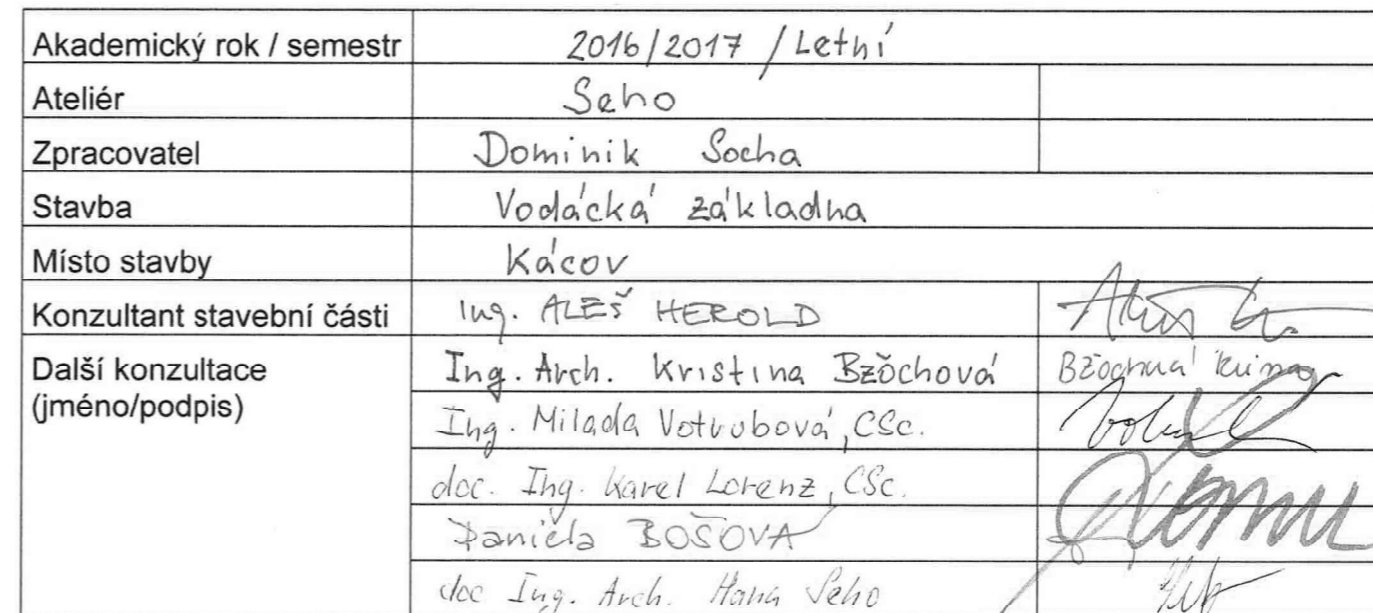 Akademický rok / semestr 2016/2017 / Letní
Ateliér Seho
Zpracovatel Dominik Socha
Stavba Vodácká základna
Místo stavby Kácov
Konzultant stavební části Ing. ALEŠ HEROLD
Další konzultace Ing. Arch. Kristina Bžochová
(jméno/podpis)
Ing. Milada Votrubová, CSc.
doc. Ing. Karel Lorenz, CSc.
Daniela BOŠOVÁ
doc Ing. Arch. Hana Seho